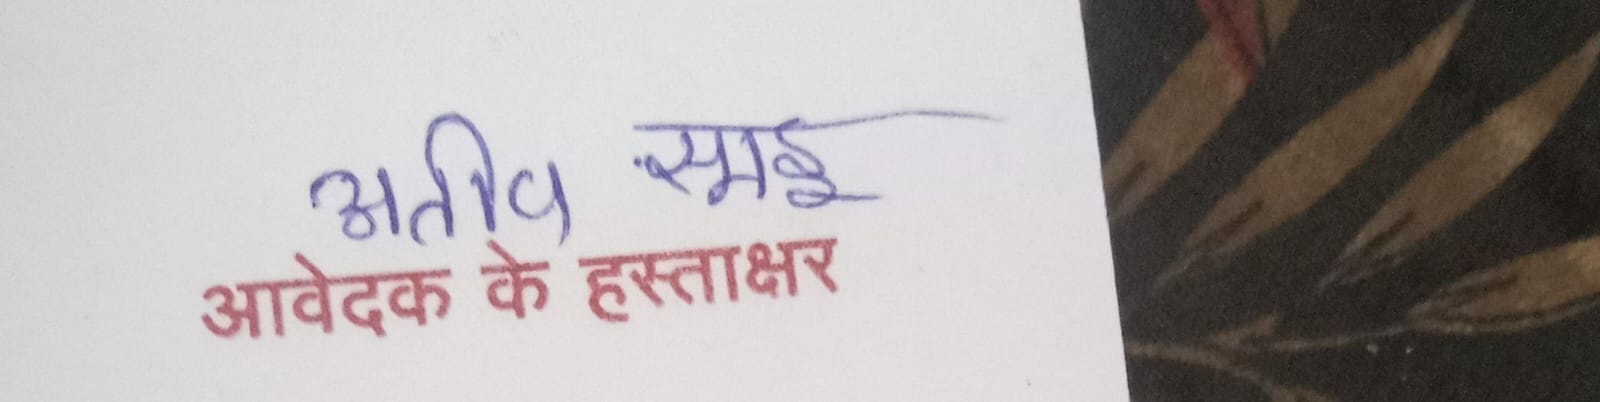 अतीव
आवेदक के हस्ताक्षर